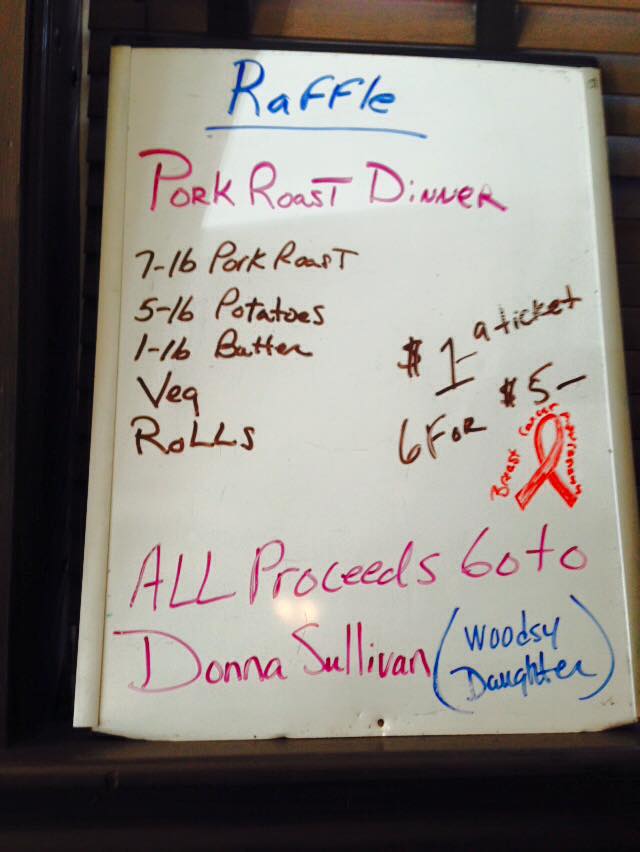 Raffle
Pork Roast Dinner
7-lb Pork Roast
5-lb Potatoes
1-lb Butter
Veg
Rolls
$1- a ticket
6 For $5-
Breast Cancer Awareness
ALL Proceeds Go to
Donna Sullivan (Woodsy
Daughter)